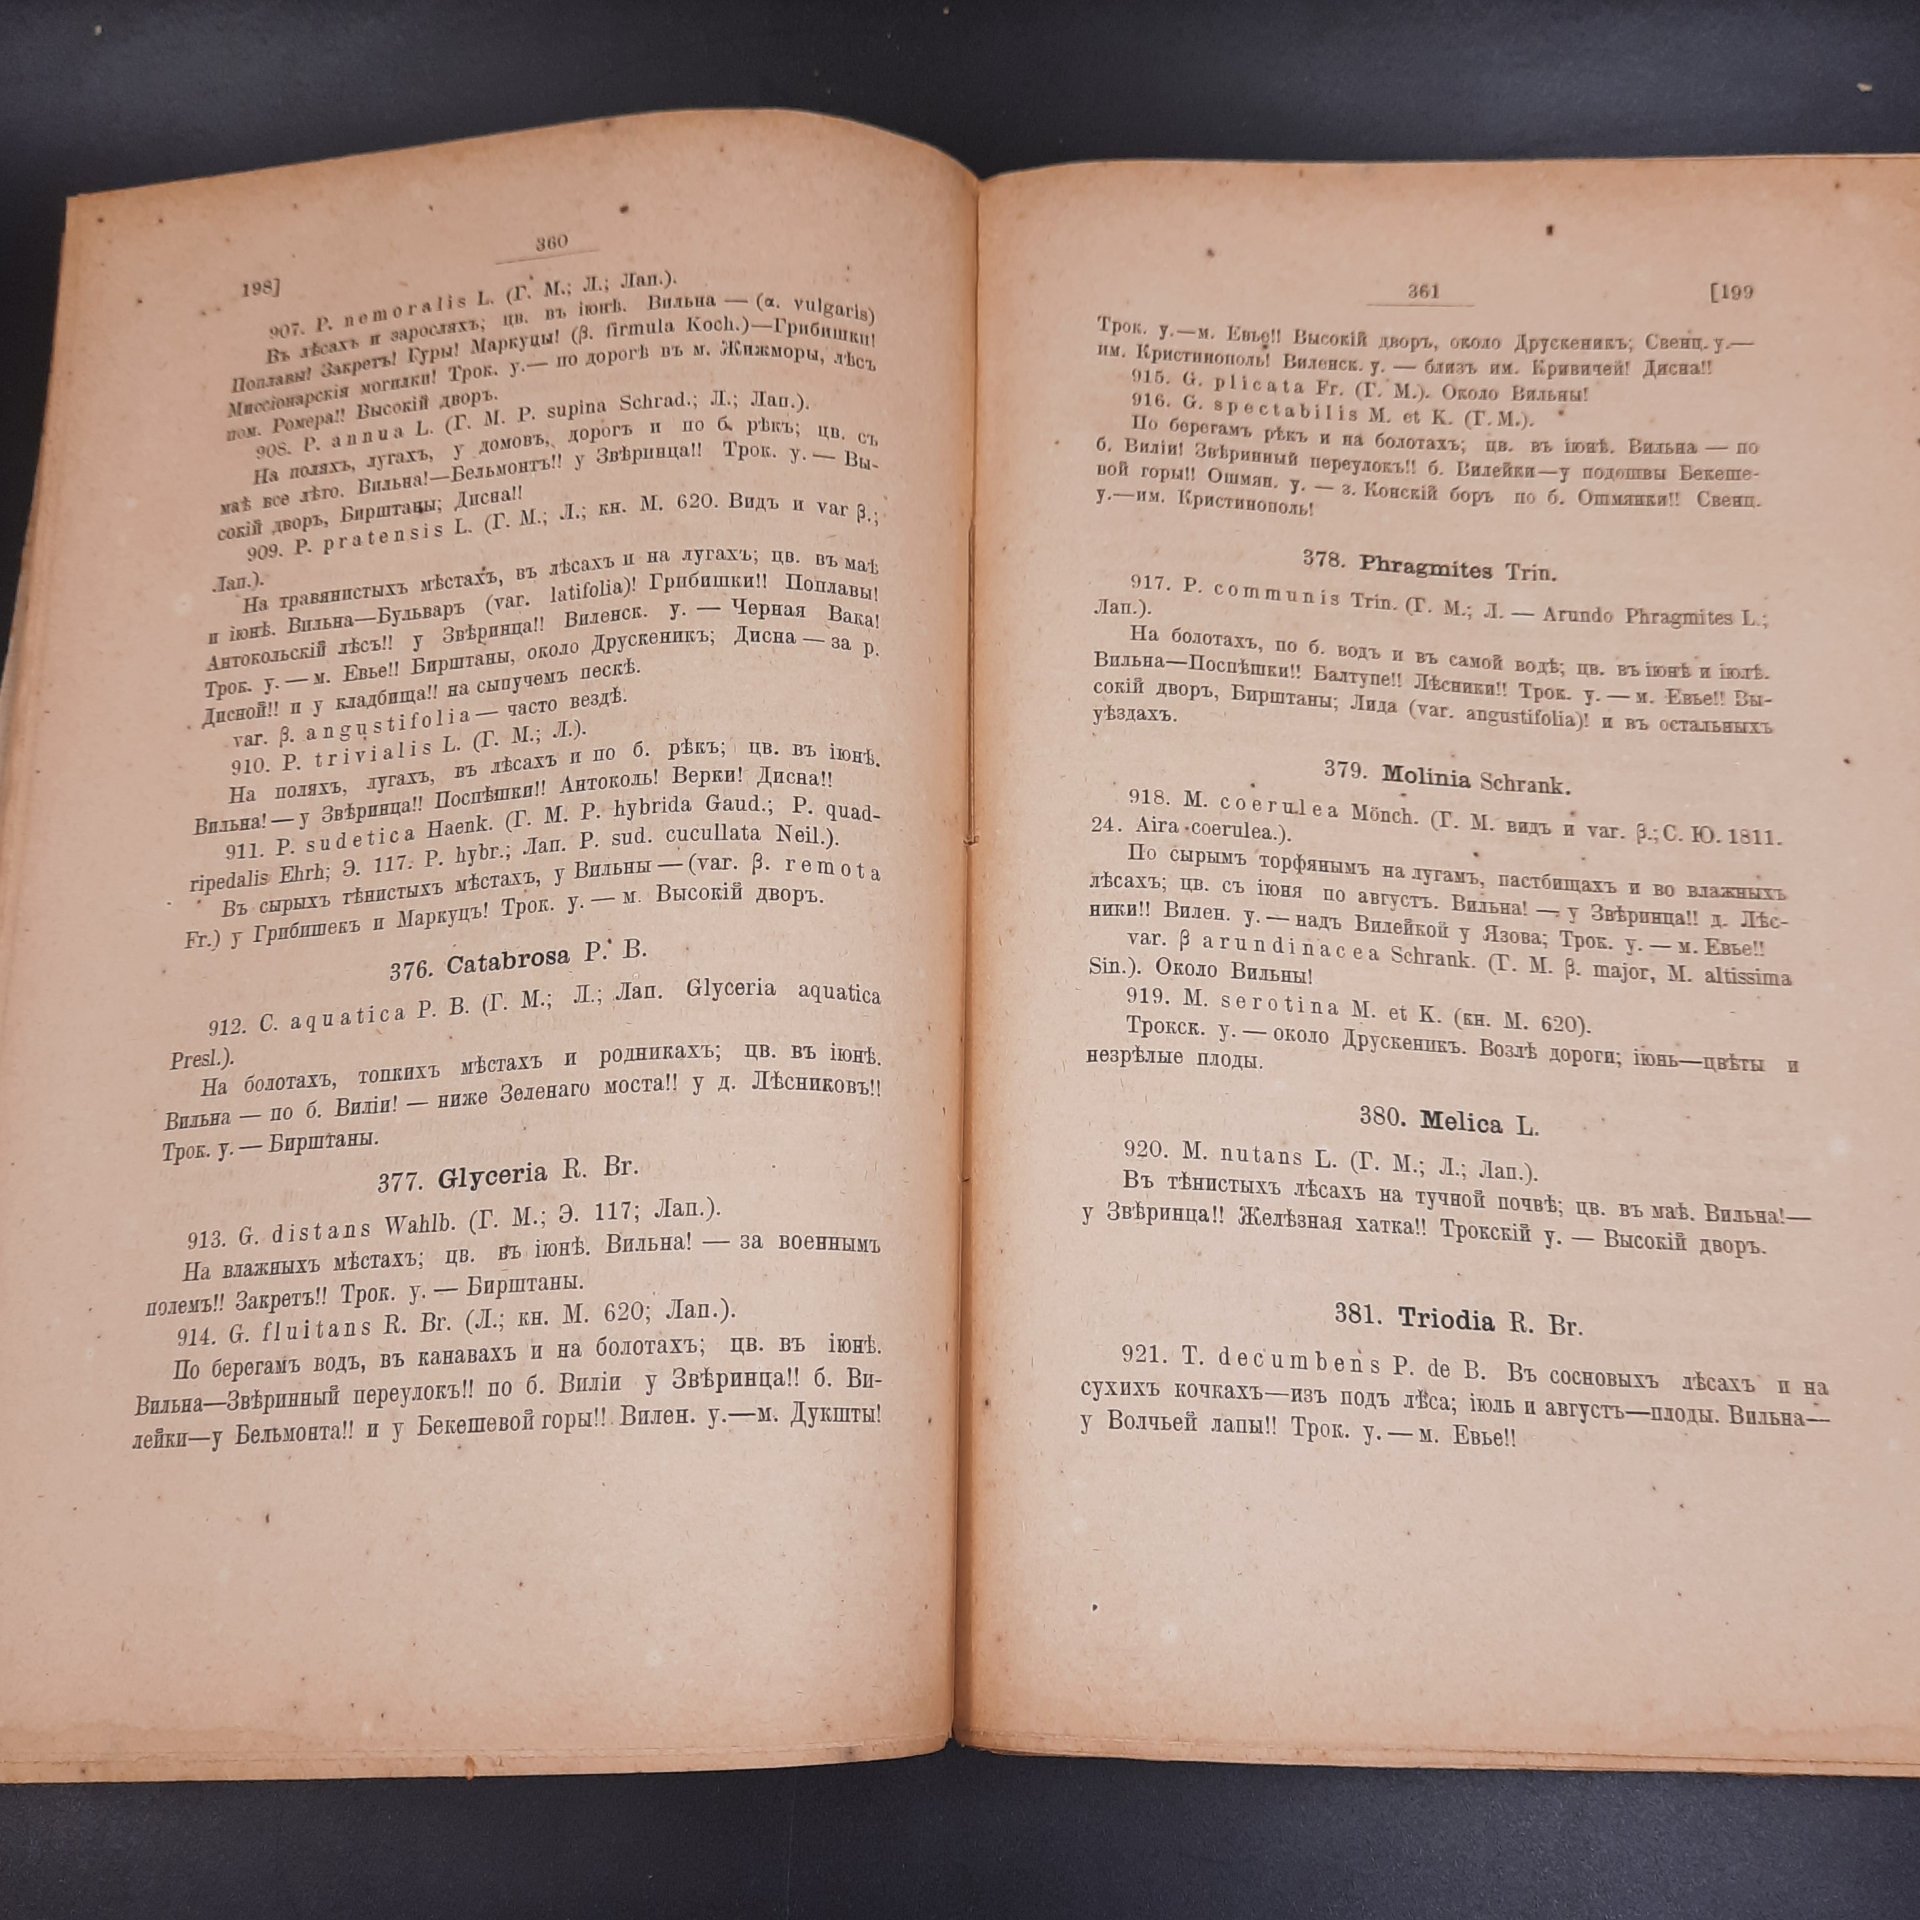 360
198]
907. P. nemoralis L. (Г. М.; Л.; Лап.).
Въ лѣсахъ и заросляхъ; цв. въ іюнѣ. Вильна — (α. vulgaris)
Поплавы! Закретъ! Гуры! Маркуцы! (β. firmula Koch.)—Грибишки!
Миссіонарскія могилки! Трок. у.— по дорогѣ въ м. Жижморы, лѣсъ
пом. Ромера!! Высокій дворъ.
908. P. annua L. (Г. М. P. supina Schrad.; Л.; Лап.).
На поляхъ, лугахъ, у домовъ, дорогъ и по б. рѣкъ; цв. съ
маѣ все лѣто. Вильна!—Бельмонтъ!! у Звѣринца!! Трок. у. — Вы-
сокій дворъ, Бирштаны; Дисна!!
909. P. pratensis L. (Г. М.; Л.; кн. М. 620. Видъ и var β.;
Лап.).
На травянистыхъ мѣстахъ, въ лѣсахъ и на лугахъ; цв. въ маѣ
и іюнѣ. Вильна—Бульваръ (var. latifolia)! Грибишки!! Поплавы!
Антокольскій лѣсъ!! у Звѣринца!! Виленск. у. — Черная Вака!
Трок. у. — м. Евье!! Бирштаны, около Друскеникъ; Дисна — за р.
Дисной!! и у кладбища!! на сыпучемъ пескѣ.
var. β. angustifolia — часто вездѣ.
910. P. trivialis L. (Г. М.; Л.).
На поляхъ, лугахъ, въ лѣсахъ и по б. рѣкъ; цв. въ іюнѣ.
Вильна! — у Звѣринца!! Поспѣшки!! Антоколь! Верки! Дисна!!
911. P. sudetica Haenk. (Г. М. P. hybrida Gaud.; P. quad-
ripedalis Ehrh; Э. 117. P. hybr.; Лап. P. sud. cucullata Neil.).
Въ сырыхъ тѣнистыхъ мѣстахъ, у Вильны — (var. β. remota
Fr.) у Грибишекъ и Маркуцъ! Трок. у. — м. Высокій дворъ.
376. Catabrosa P. B.
912. C. aquatica P. B. (Г. М.; Л.; Лап. Glyceria aquatica
Presl.).
На болотахъ, топкихъ мѣстахъ и родникахъ; цв. въ іюнѣ.
Вильна — по б. Виліи! — ниже Зеленаго моста!! у д. Лѣсниковъ!!
Трок. у. — Бирштаны.
377. Glyceria R. Br.
913. G. distans Wahlb. (Г. М.; Э. 117; Лап.).
На влажныхъ мѣстахъ; цв. въ іюнѣ. Вильна! — за военнымъ
полемъ!! Закретъ!! Трок. у. — Бирштаны.
914. G. fluitans R. Br. (Л.; кн. М. 620; Лап.).
По берегамъ водъ, въ канавахъ и на болотахъ; цв. въ іюнѣ.
Вильна—Звѣринный переулокъ!! по б. Виліи у Звѣринца!! б. Ви-
лейки—у Бельмонта!! и у Бекешевой горы!! Вилен. у.—м. Дукшты!
361
[199
Трок. у.—м. Евье!! Высокій дворъ, около Друскеникъ; Свенц. у.—
им. Кристинополь! Виленск. у. — близъ им. Кривичей! Дисна!!
915. G. plicata Fr. (Г. М.). Около Вильны!
916. G. spectabilis M. et K. (Г. М.).
По берегамъ рѣкъ и на болотахъ; цв. въ іюнѣ. Вильна — по
б. Виліи! Звѣринный переулокъ!! б. Вилейки—у подошвы Бекеше-
вой горы!! Ошмян. у. — з. Конскій боръ по б. Ошмянки!! Свенц.
у.—им. Кристинополь!
378. Phragmites Trin.
917. P. communis Trin. (Г. М.; Л. — Arundo Phragmites L.;
Лап.).
На болотахъ, по б. водъ и въ самой водѣ; цв. въ іюнѣ и іюлѣ.
Вильна—Поспѣшки!! Балтупе!! Лѣсники!! Трок. у. — м. Евье!! Вы-
сокій дворъ, Бирштаны; Лида (var. angustifolia)! и въ остальныхъ
уѣздахъ.
379. Molinia Schrank.
918. M. coerulea Mönch. (Г. М. видъ и var. β.; С. Ю. 1811.
24. Aira coerulea.).
По сырымъ торфянымъ на лугамъ, пастбищахъ и во влажныхъ
лѣсахъ; цв. съ іюня по августъ. Вильна! — у Звѣринца!! д. Лѣс-
ники!! Вилен. у. — надъ Вилейкой у Язова; Трок. у. — м. Евье!!
var. β arundinacea Schrank. (Г. М. β. major, M. altissima
Sin.). Около Вильны!
919. M. serotina M. et K. (кн. М. 620).
Трокск. у. — около Друскеникъ. Возлѣ дороги; іюнь—цвѣты и
незрѣлые плоды.
380. Melica L.
920. M. nutans L. (Г. М.; Л.; Лап.).
Въ тѣнистыхъ лѣсахъ на тучной почвѣ; цв. въ маѣ. Вильна!—
у Звѣринца!! Желѣзная хатка!! Трокскій у. — Высокій дворъ.
381. Triodia R. Br.
921. T. decumbens P. de B. Въ сосновыхъ лѣсахъ и на
сухихъ кочкахъ—изъ подъ лѣса; іюль и августъ—плоды. Вильна—
у Волчьей лапы!! Трок. у. — м. Евье!!